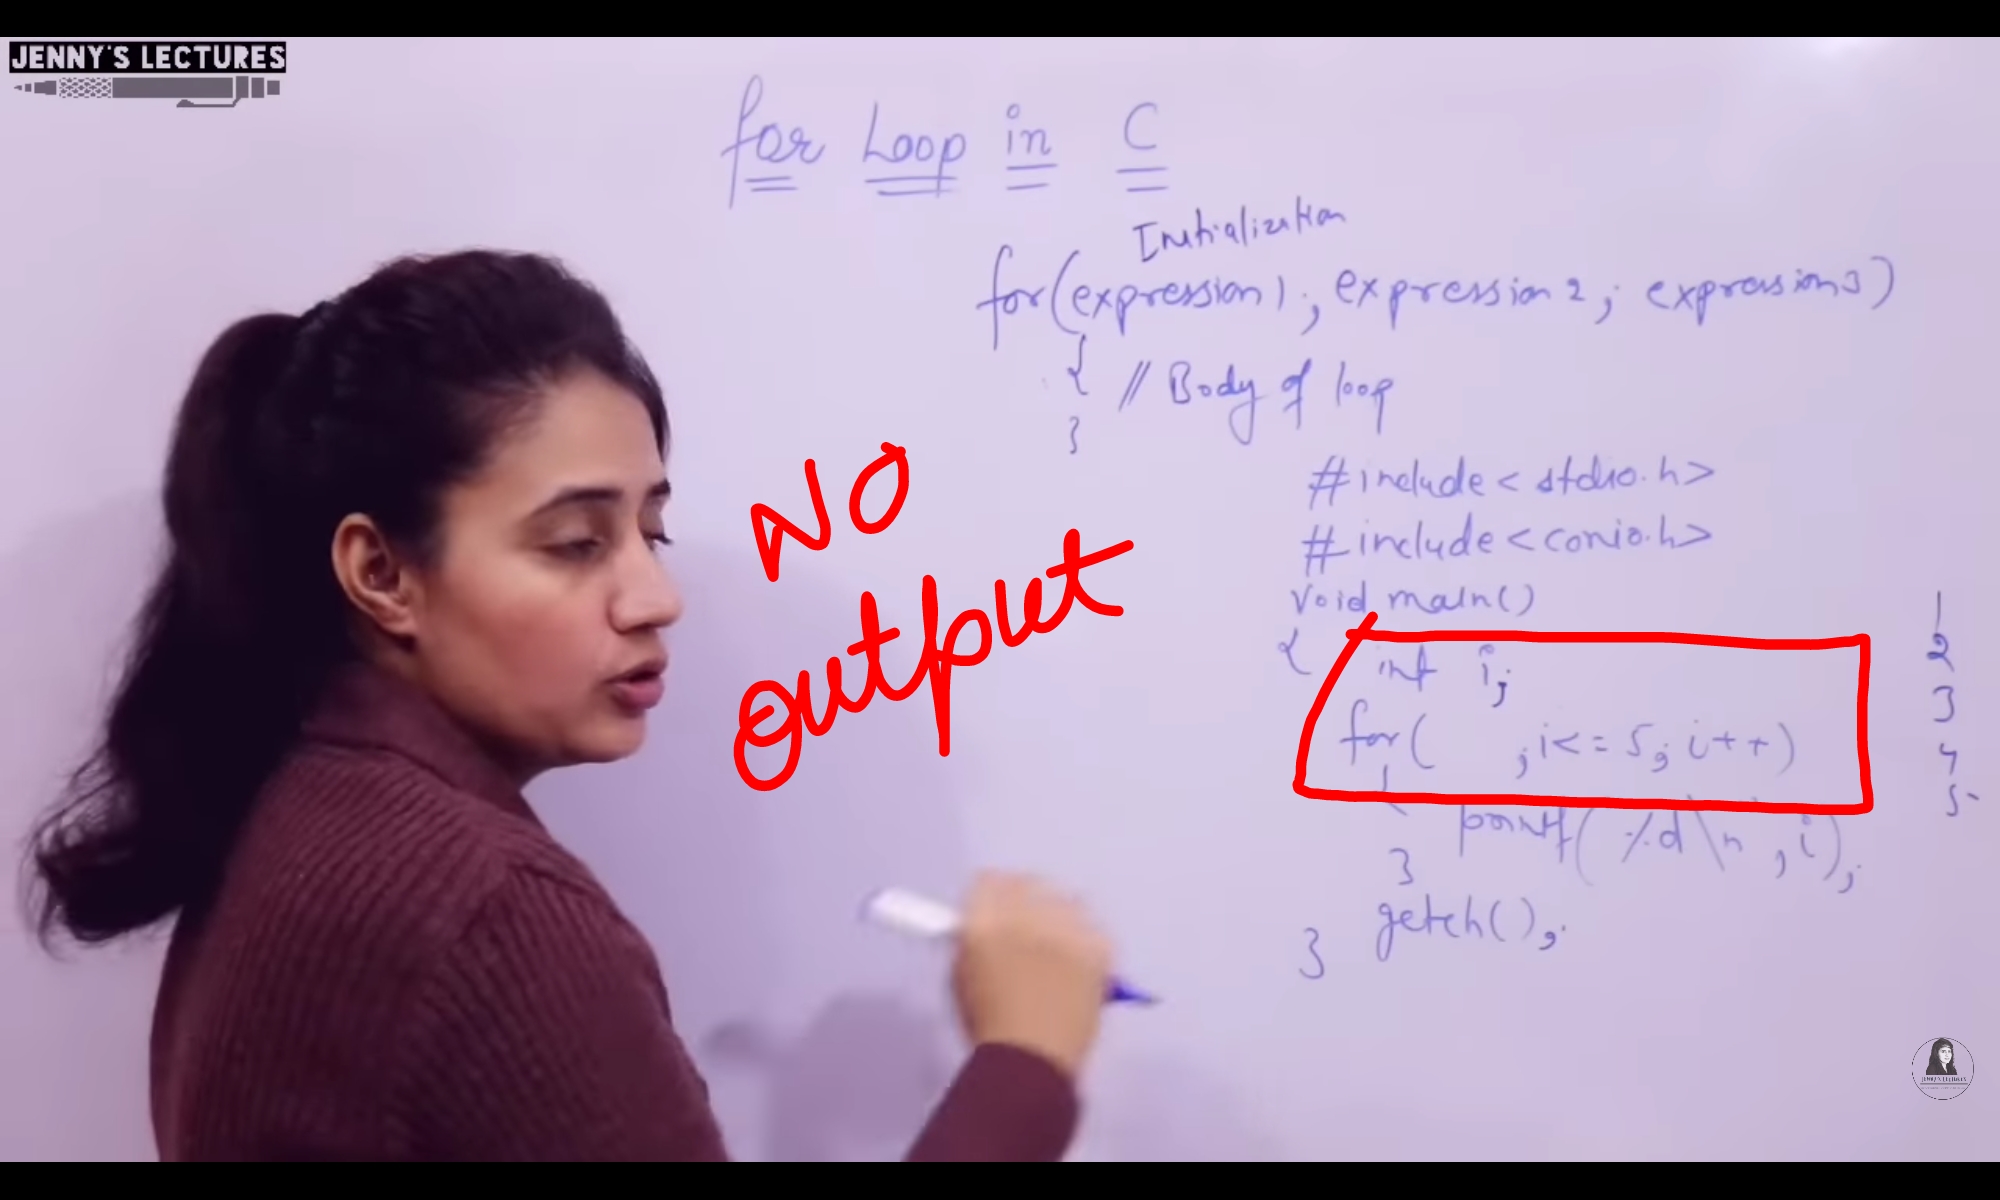 JENNY'S LECTURES
for Loop in C
Initialization
for(expression1; expression2; expression3)
{ // Body of loop
}
NO
output
#include<stdio.h>
#include<conio.h>
void main()
{ int i;
for( ;i<=5; i++)
{
printf("%d\n", i);
}
getch();
}
1
2
3
4
5
JENNY'S LECTURES